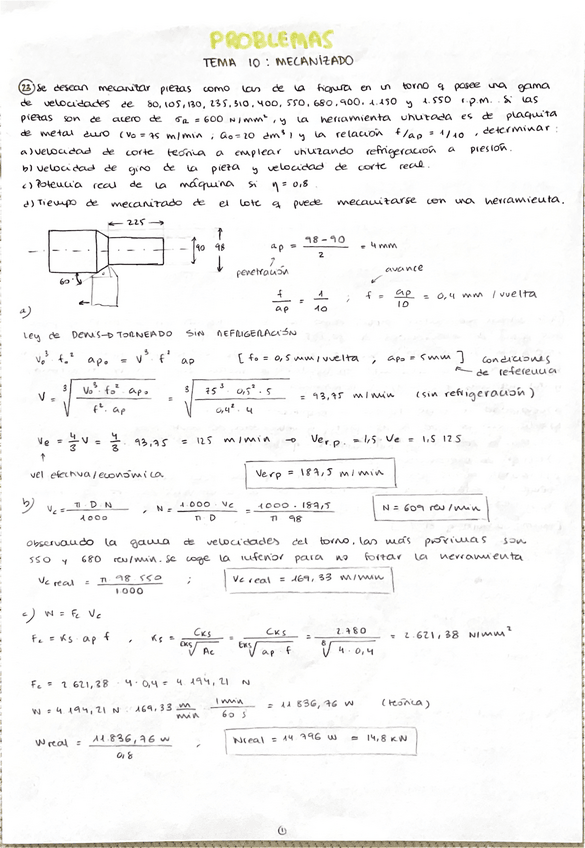 PROBLEMAS
TEMA 10: MECANIZADO
(23) Se desean mecanizar piezas como las de la figura en un torno q posee una gama
de velocidades de 80, 105, 130, 235, 310, 400, 550, 680, 900, 1.150 y 1.550 r.p.m. Si las
piezas son de acero de σR = 600 N/mm², y la herramienta utilizada es de plaquita
de metal duro (Vo = 75 m/min; ao = 20 dm³) y la relación f/ap = 1/10, determinar:
a) velocidad de corte teórica a emplear utilizando refrigeración a presión.
b) velocidad de giro de la pieza y velocidad de corte real.
c) Potencia real de la máquina si η = 0,8.
d) Tiempo de mecanizado de el lote q puede mecanizarse con una herramienta.
225
90 98
60°
ap = (98 - 90)/2 = 4 mm
penetración
avance
f/ap = 1/10 ; f = ap/10 = 0,4 mm/vuelta
a)
Ley de DENIS → TORNEADO SIN REFRIGERACIÓN
Vo³ fo² apo = V³ f² ap [fo = 0,5 mm/vuelta, apo = 5mm] condiciones de referencia
V = ∛(Vo³ · fo² · apo / f² · ap) = ∛(75³ · 0,5² · 5 / 0,4² · 4) = 93,75 m/min (sin refrigeración)
Ve = 4/3 V = 4/3 · 93,75 = 125 m/min → Ve r.p. = 1,5 · Ve = 1,5 125
vel efectiva/económica
Verp = 187,5 m/min
b) Vc = π D N / 1000 , N = 1000 · Vc / π D = 1000 · 187,5 / π 98
N = 609 rev/min
observando la gama de velocidades del torno, las más próximas son
550 y 680 rev/min. Se coge la inferior para no forzar la herramienta
Vc real = π 98 550 / 1000 ; Vc real = 169,33 m/min
c) W = Fc Vc
Fc = Ks · ap f , Ks = CKs / εKs√Ac = CKs / εKs√ap f = 2.780 / ⁸√4 · 0,4 = 2.621,38 N/mm²
Fc = 2 621,38 · 4 · 0,4 = 4 194,21 N
W = 4 194,21 N · 169,33 m/min · 1min/60 s = 11 836,76 W (teórica)
Wreal = 11.836,76 W / 0,8 , Wreal = 14 796 W = 14,8 KW
①